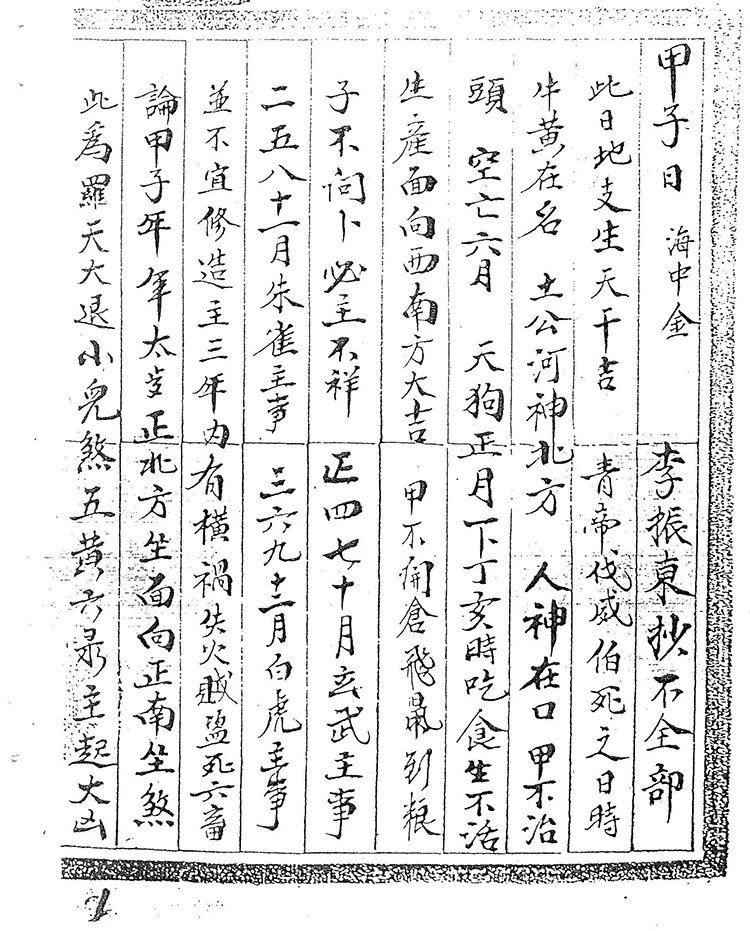 甲子日 海中金 李振東抄不全部
此日地支生天干吉 青帝伐威伯死之日時
牛黃在名 土公河神北方 人神在口 甲不治
頭 空亡六月 天狗正月下丁亥時吃食生不活
生產面向西南方大吉 甲不開倉飛鼠到粮
子不问卜必主不祥 正四七十月玄武主事
二五八十一月朱雀主事 三六九十二月白虎主事
並不宜修造主三年内有橫禍失火賊盜死六畜
論甲子年年太岁正北方坐面向正南坐煞
此為羅天大退小兒煞五黃六录主起大凶
1